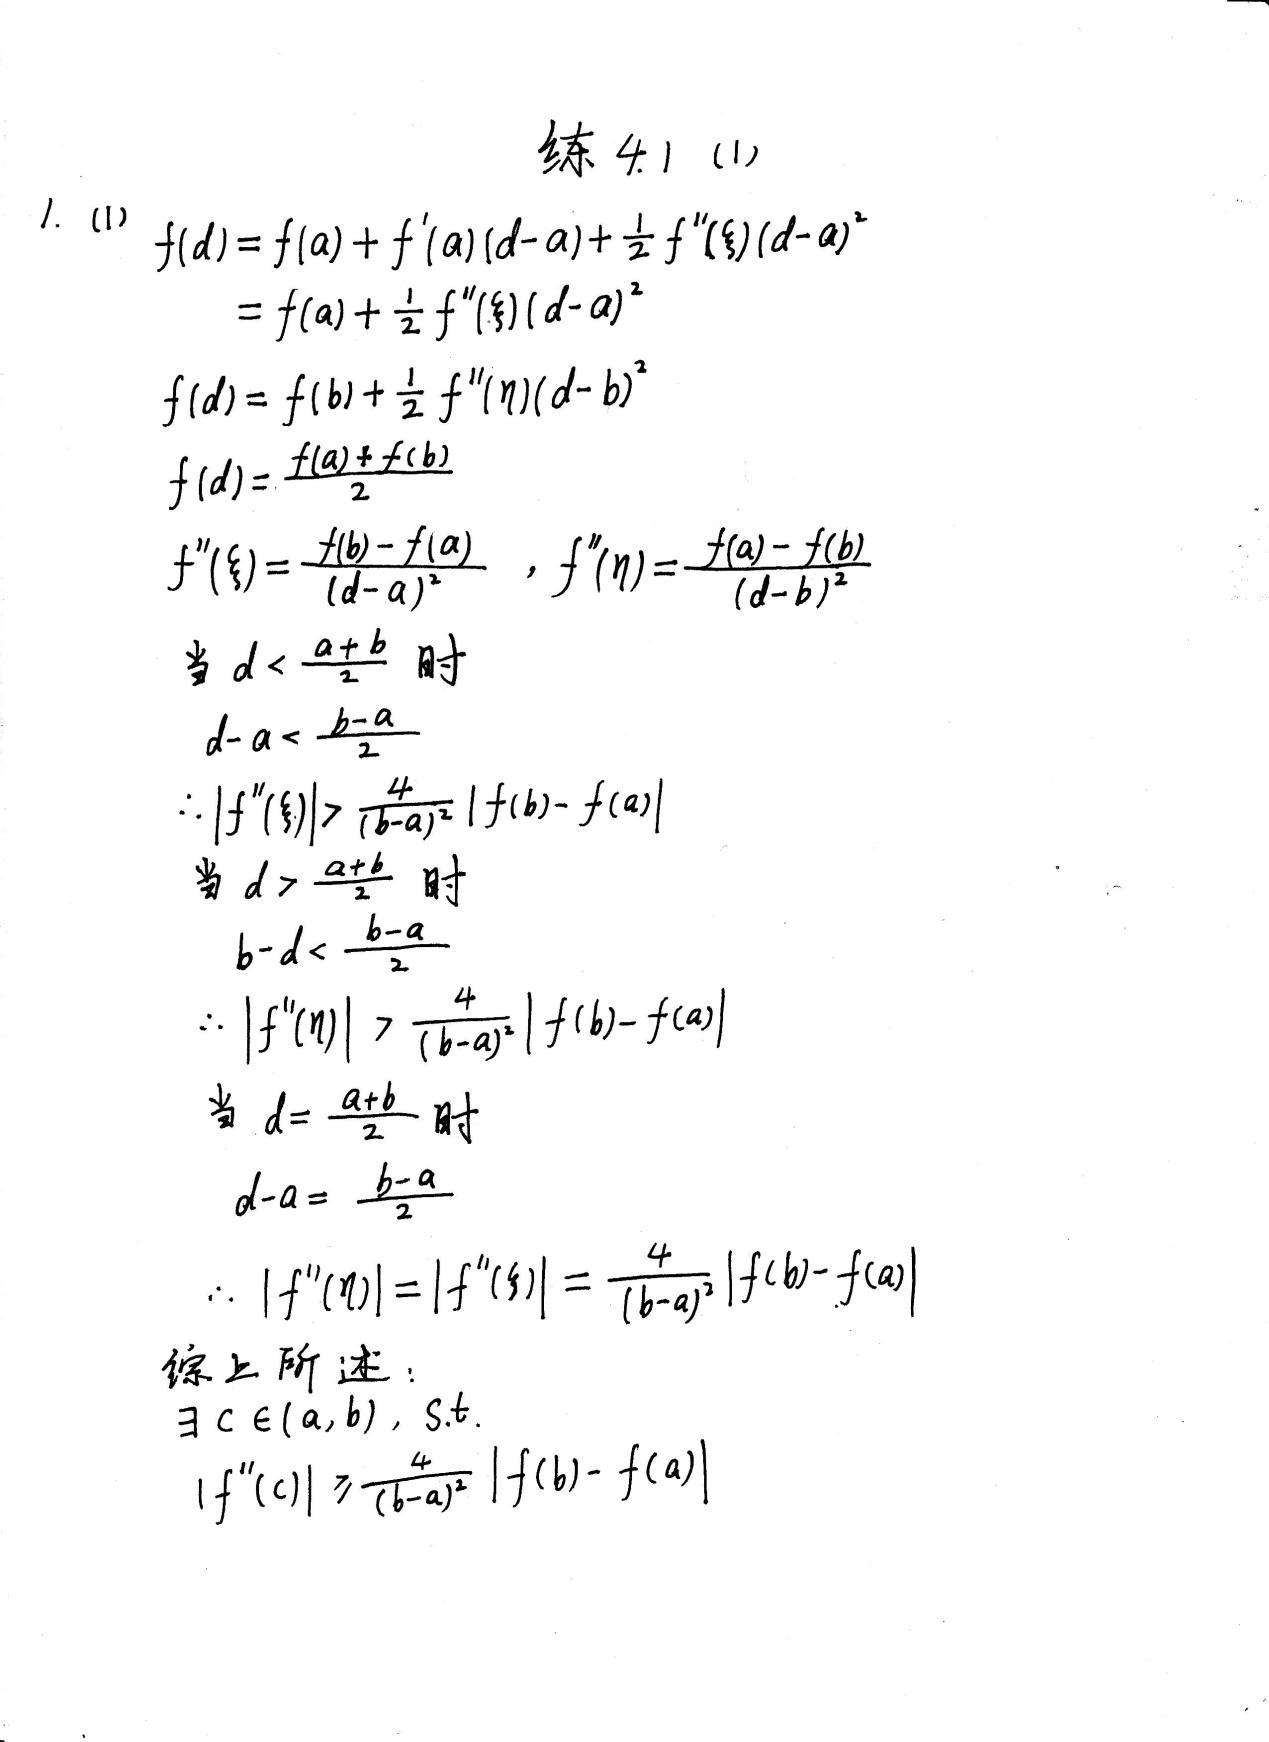 练 4.1 (1)
1. (1) f(d) = f(a) + f'(a)(d-a) + 1/2 f''(ξ)(d-a)²
= f(a) + 1/2 f''(ξ)(d-a)²
f(d) = f(b) + 1/2 f''(η)(d-b)²
f(d) = (f(a)+f(b))/2
f''(ξ) = (f(b)-f(a))/(d-a)² , f''(η) = (f(a)-f(b))/(d-b)²
当 d < (a+b)/2 时
d-a < (b-a)/2
∴ |f''(ξ)| > 4/(b-a)² |f(b)-f(a)|
当 d > (a+b)/2 时
b-d < (b-a)/2
∴ |f''(η)| > 4/(b-a)² |f(b)-f(a)|
当 d = (a+b)/2 时
d-a = (b-a)/2
∴ |f''(η)| = |f''(ξ)| = 4/(b-a)² |f(b)-f(a)|
综上所述:
∃ c ∈ (a,b), s.t.
|f''(c)| ⩾ 4/(b-a)² |f(b)-f(a)|